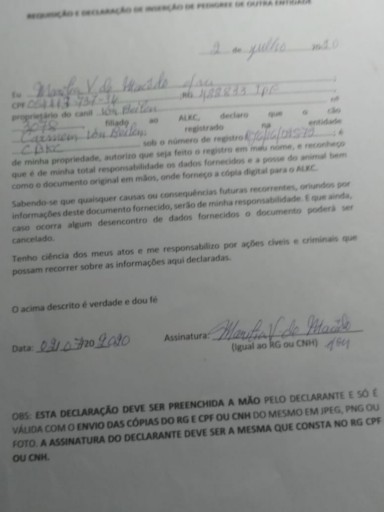 REQUISIÇÃO E DECLARAÇÃO DE INSERÇÃO DE PEDIGREE DE OUTRA ENTIDADE
2 de julho 2020
Eu Marilia V de Macedo
CPF
proprietário do canil Von Beilen nº
3075 filiado ao ALKC, declaro que o cão
Carmem Von Beilen registrado na entidade
CBKC sob o número de registro é
de minha propriedade, autorizo que seja feito o registro em meu nome, e reconheço
que é de minha total responsabilidade os dados fornecidos e a posse do animal bem
como o documento original em mãos, onde forneço a cópia digital para o ALKC.
Sabendo-se que quaisquer causas ou consequências futuras recorrentes, oriundos por
informações deste documento fornecido, serão de minha responsabilidade. E que ainda,
caso ocorra algum desencontro de dados fornecidos o documento poderá ser
cancelado.
Tenho ciência dos meus atos e me responsabilizo por ações cíveis e criminais que
possam recorrer sobre as informações aqui declaradas.
O acima descrito é verdade e dou fé
Data: 02/07/20 2020 Assinatura: Marilia V de Macedo
(Igual ao RG ou CNH)
OBS: ESTA DECLARAÇÃO DEVE SER PREENCHIDA A MÃO PELO DECLARANTE E SÓ É
VÁLIDA COM O ENVIO DAS CÓPIAS DO RG E CPF OU CNH DO MESMO EM JPEG, PNG OU
FOTO. A ASSINATURA DO DECLARANTE DEVE SER A MESMA QUE CONSTA NO RG CPF
OU CNH.